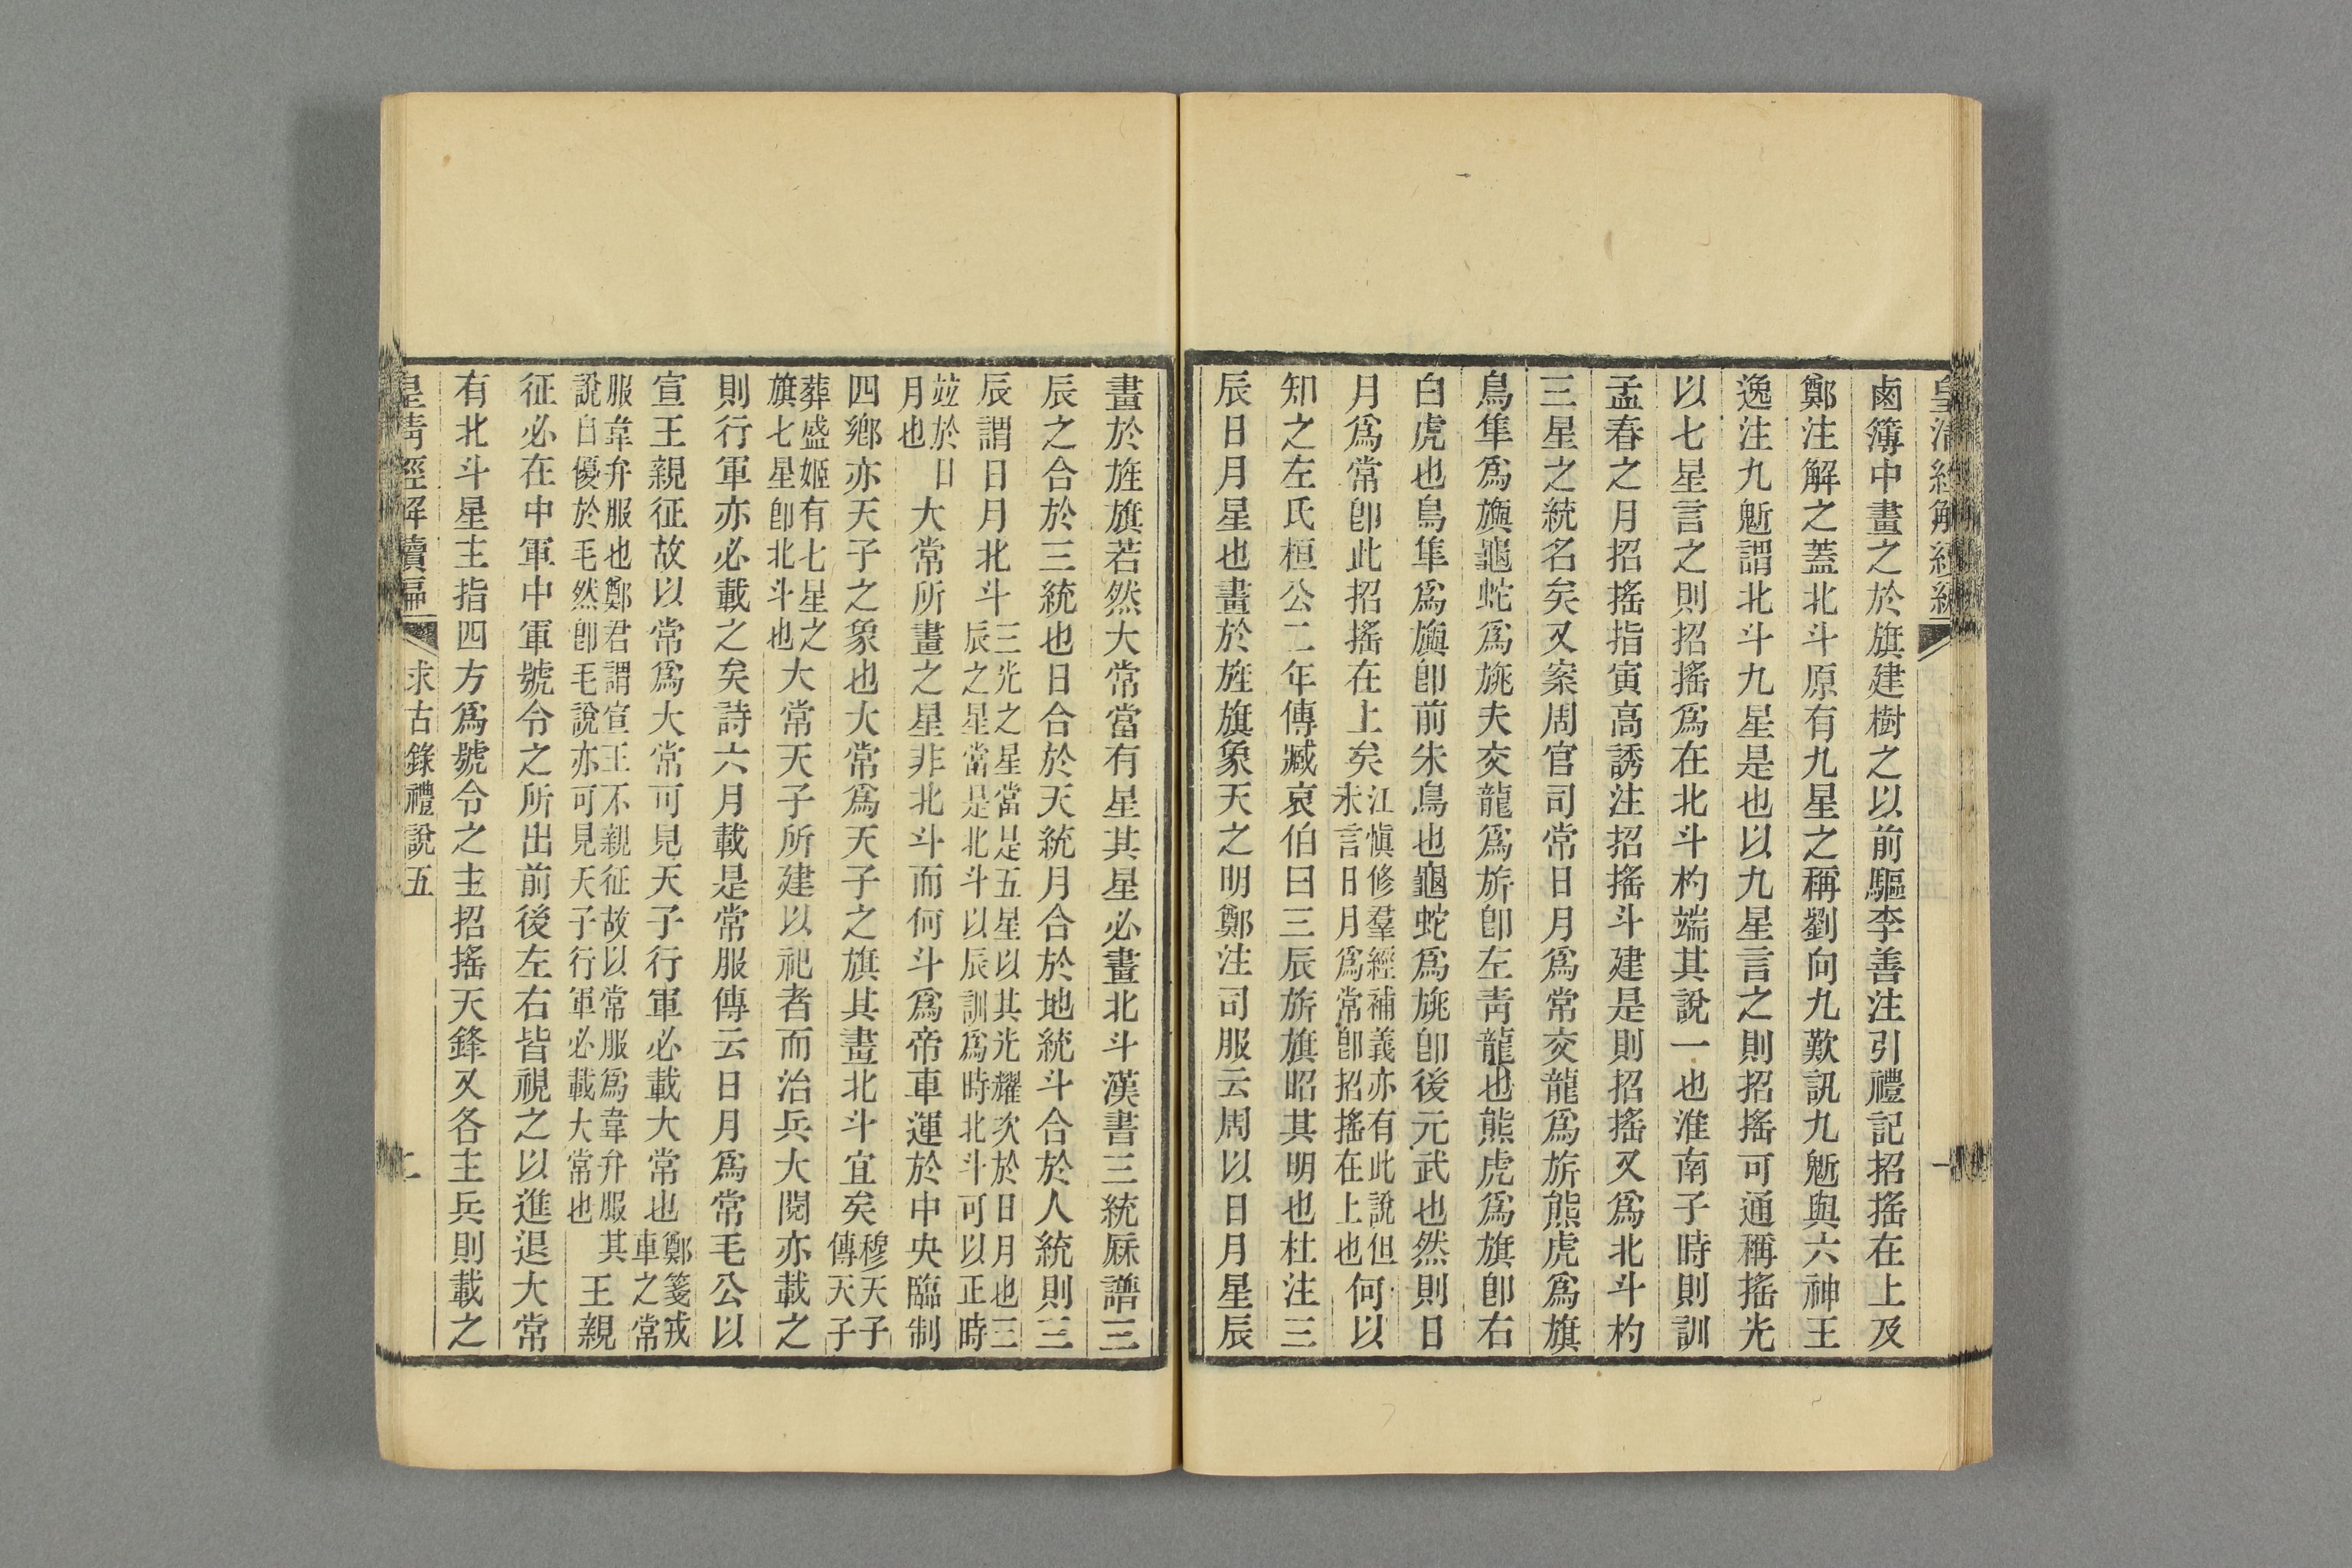 鹵簿中畫之於旗建樹之以前驅李善注引禮記招搖在上及
鄭注解之蓋北斗原有九星之稱劉向九歎訊九鬿與六神王
逸注九鬿謂北斗九星是也以九星言之則招搖可通稱搖光
以七星言之則招搖爲在北斗杓端其說一也淮南子時則訓
孟春之月招搖指寅高誘注招搖斗建是則招搖又爲北斗杓
三星之統名矣又案周官司常日月爲常交龍爲旂熊虎爲旗
鳥隼爲旟龜蛇爲旐夫交龍爲旂卽左靑龍也熊虎爲旗卽右
白虎也鳥隼爲旟卽前朱鳥也龜蛇爲旐卽後元武也然則日
月爲常卽此招搖在上矣江愼修羣經補義亦有此說但未言日月爲常卽招搖在上也何以
知之左氏桓公二年傳臧哀伯曰三辰旂旗昭其明也杜注三
辰日月星也畫於旌旗象天之明鄭注司服云周以日月星辰
畫於旌旗若然大常當有星其星必畫北斗漢書三統厤譜三
辰之合於三統也日合於天統月合於地統斗合於人統則三
辰謂日月北斗三光之星當是五星以其光耀次於日月也三辰之星當是北斗以辰訓爲時北斗可以正時
竝於日月也大常所畫之星非北斗而何斗爲帝車運於中央臨制
四鄉亦天子之象也大常爲天子之旗其畫北斗宜矣穆天子傳天子
葬盛姬有七星之旗七星卽北斗也大常天子所建以祀者而治兵大閱亦載之
則行軍亦必載之矣詩六月載是常服傳云日月爲常毛公以
宣王親征故以常爲大常可見天子行軍必載大常也鄭箋戎車之常
服韋弁服也鄭君謂宣王不親征故以常服爲韋弁服其說自優於毛然卽毛說亦可見天子行軍必載大常也王親
征必在中軍中軍號令之所出前後左右皆視之以進退大常
有北斗星主指四方爲號令之主招搖天鋒又各主兵則載之
皇清經解續編
求古錄禮說五